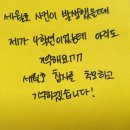 세월호 사건이 발생했을때
제가 4학년이었는데 아직도
기억해요!!!
세월호 참사를 추모하고
기억하겠습니다!